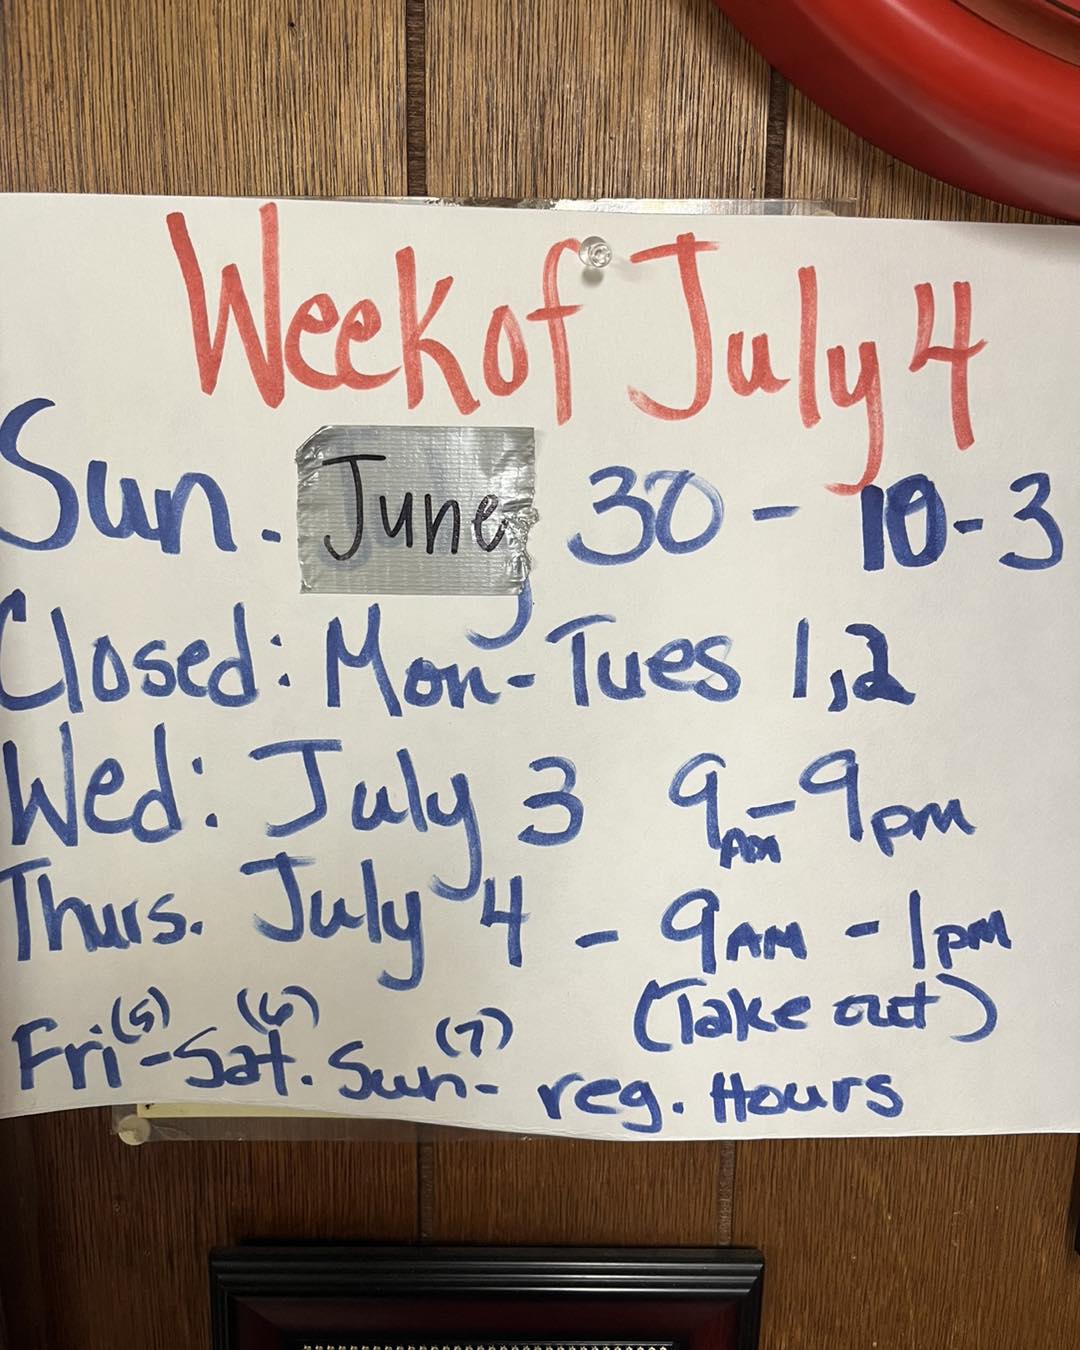 Week of July 4
Sun. June 30 - 10-3
Closed: Mon-Tues 1,2
Wed: July 3 9AM-9pm
Thurs. July 4 - 9AM - 1pm
(Take out)
Fri(5)-Sat.(6) Sun(7)- reg. Hours